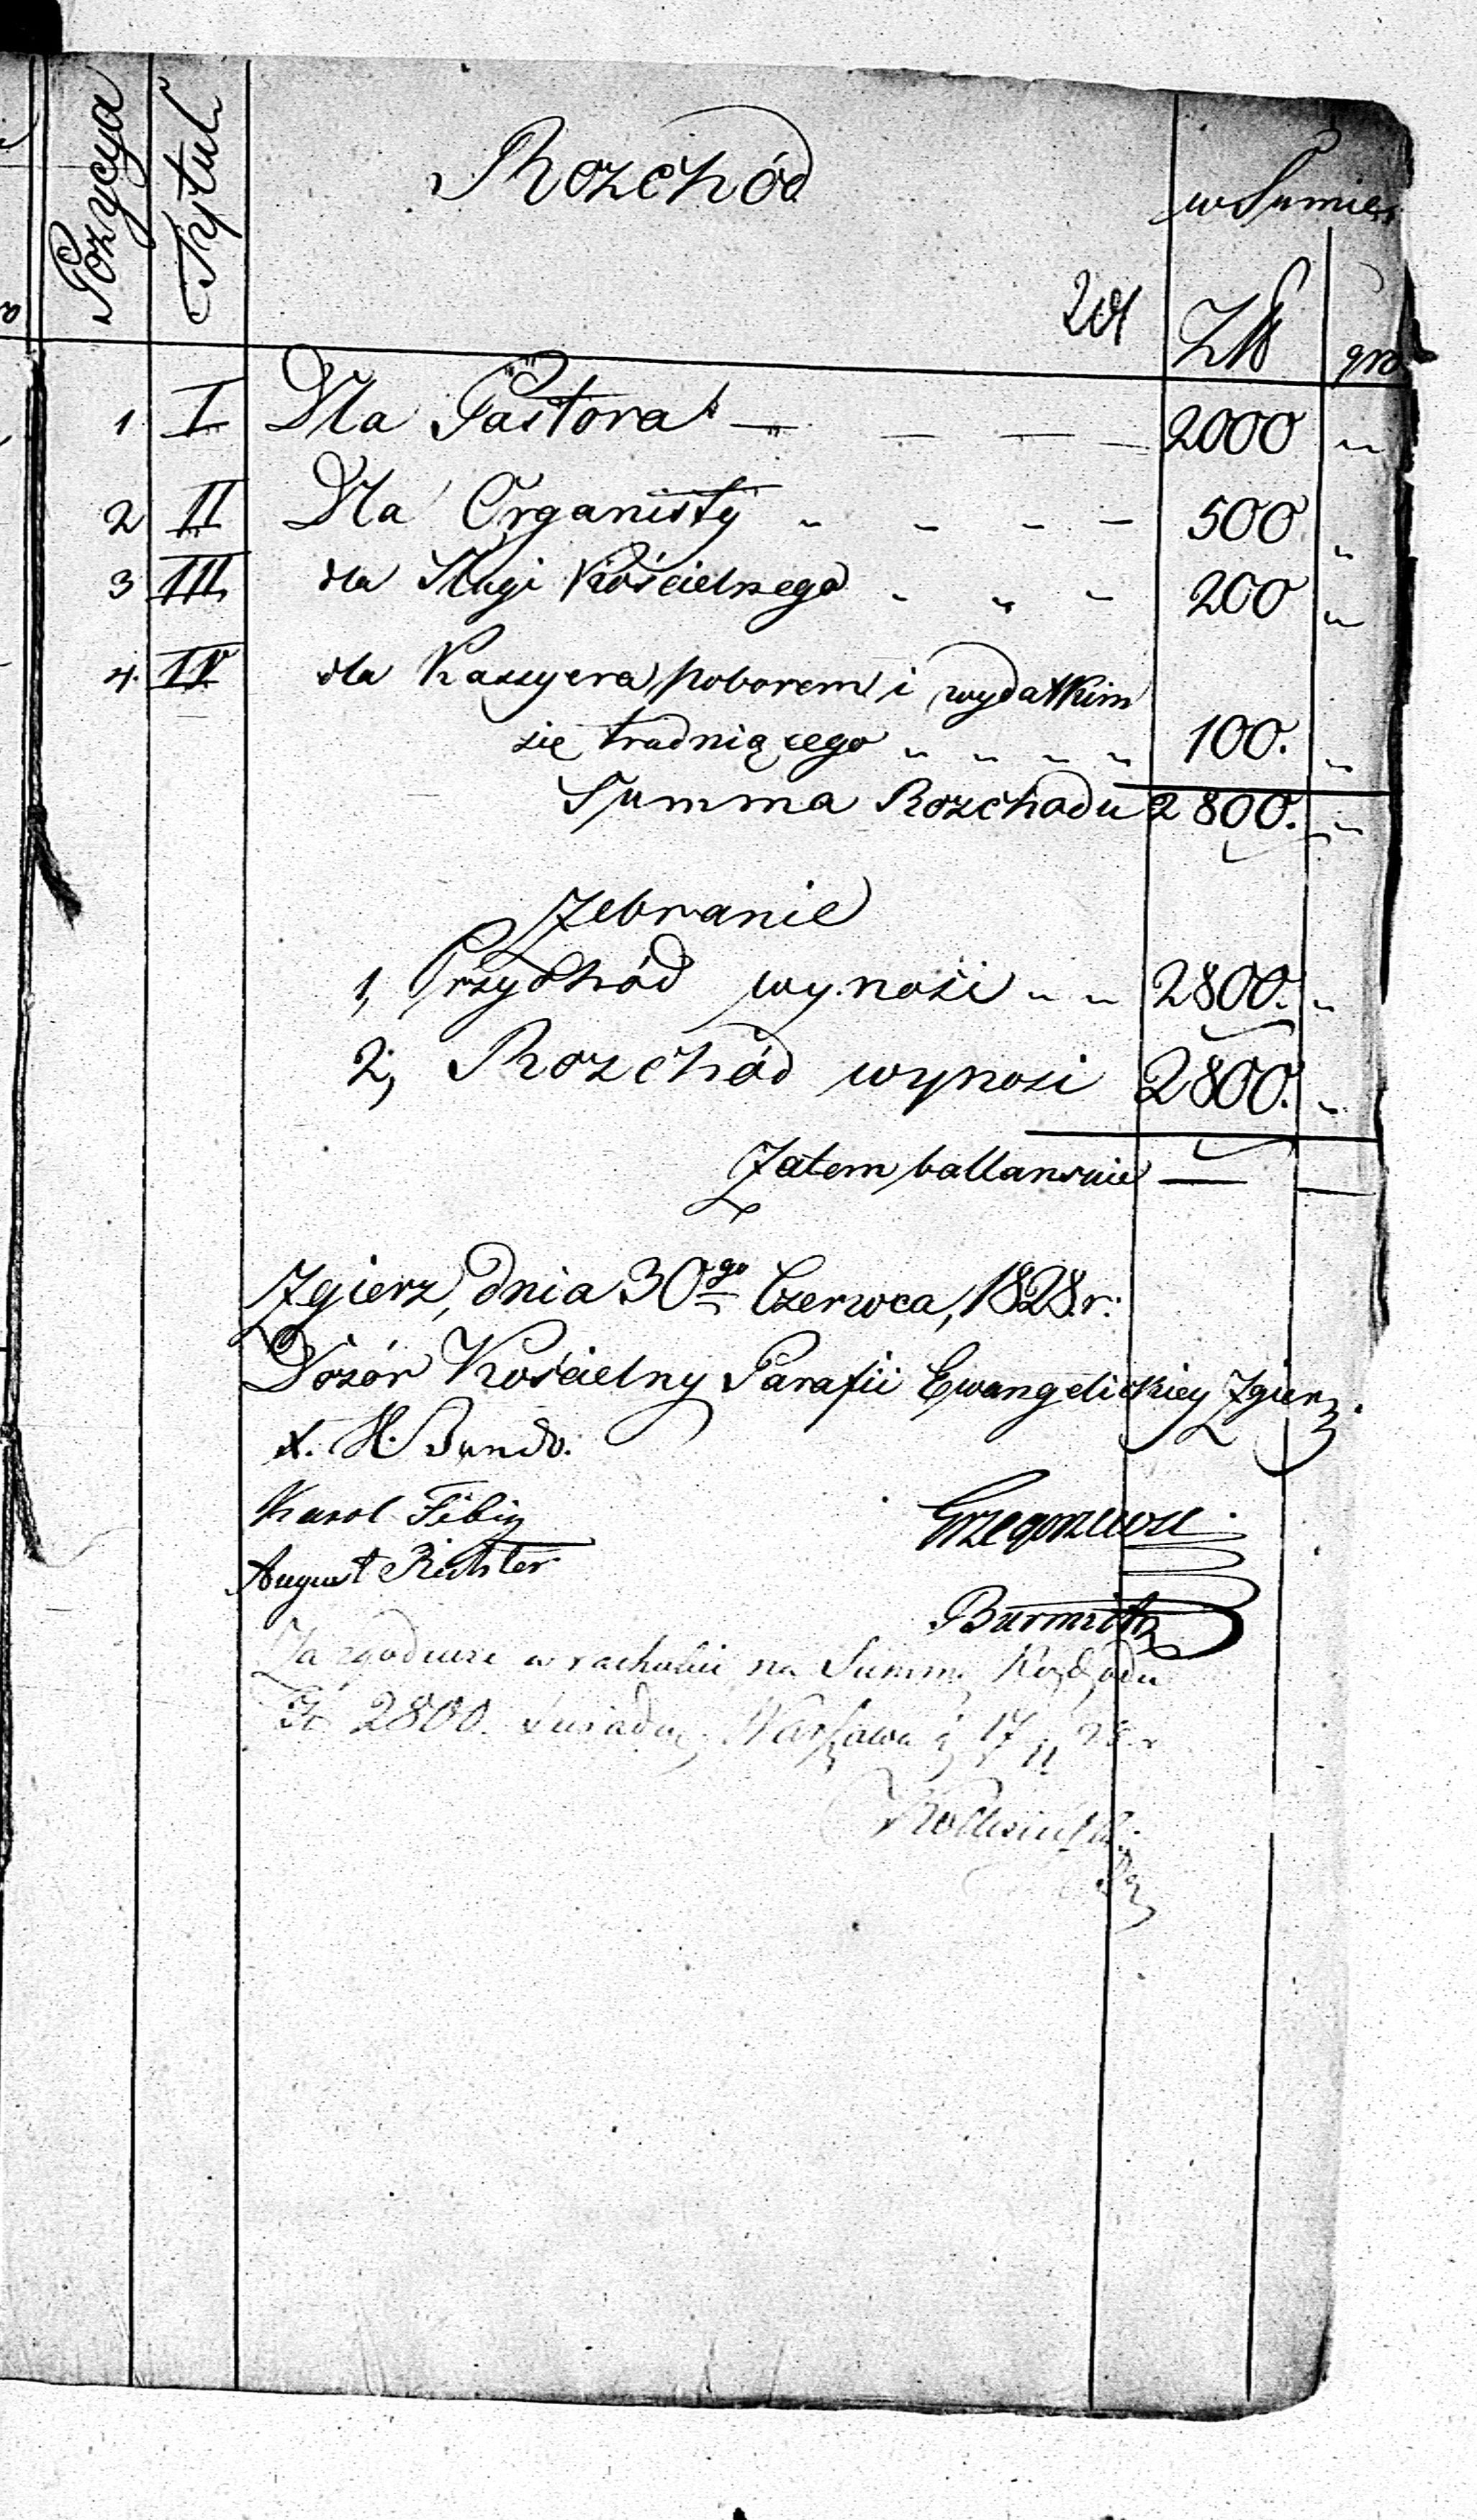 Pozycya Tytuł Rozchód w Summie
Złp gro
1 I Dla Pastora 2000 "
2 II Dla Organisty 500 "
3 III dla Sługi Kościelnego 200 "
4. IV dla Kassyera poborem i wydatkim
się trudniącego 100. "
Summa Rozchodu 2800. "
Zebranie
1, Przychód wynosi 2800. "
2, Rozchód wynosi 2800. "
Zatem ballansuie — —
Zgierz, dnia 30go Czerwca, 1828.r:
Dozór Kościelny Parafii Ewangelickiey Zgierz.
Karol Fibig
August Richter
Burmistrz
Za zgodność w rachubie na Summę Rozchodu
Zł 2800. Warszawa 17